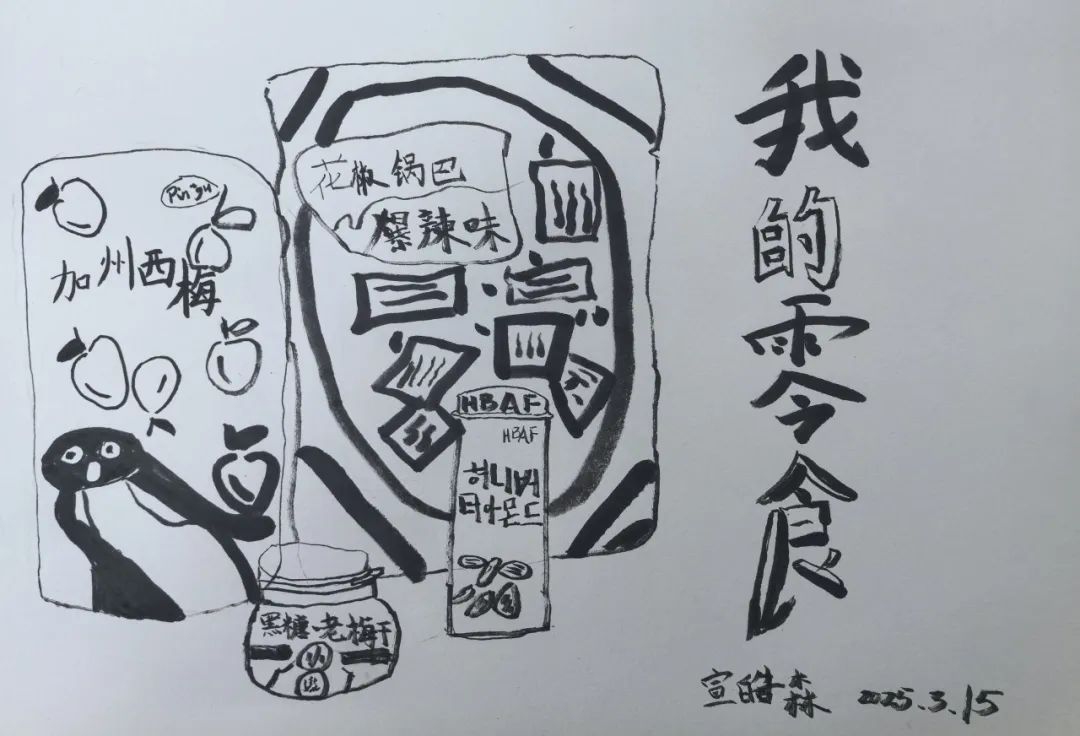 我的零食
Pingu
加州西梅
花椒锅巴
爆辣味
HBAF
HBAF
허니버
터아몬드
黑糖·老梅干
宣皓森 2025.3.15